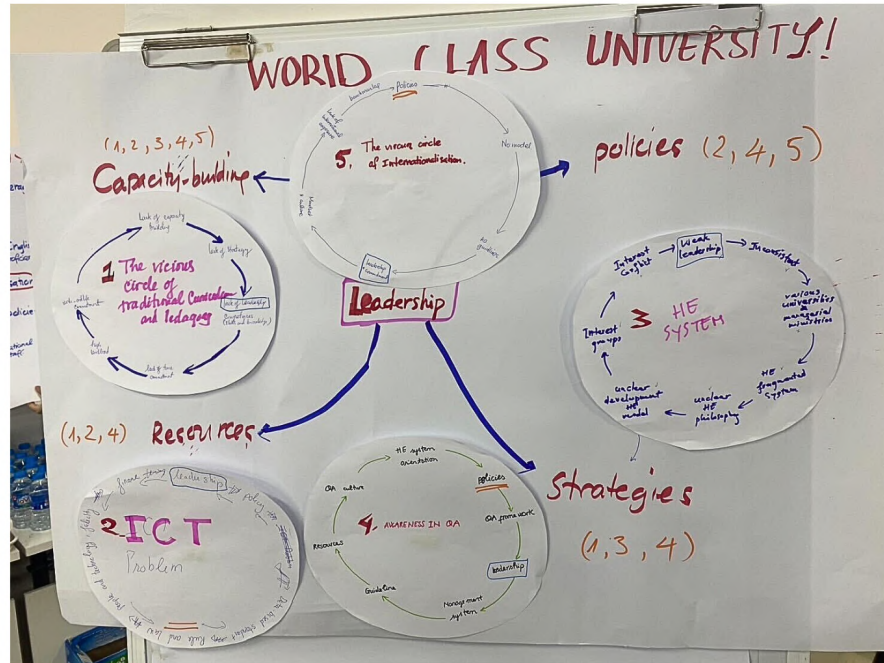 WORLD CLASS UNIVERSITY!
(1, 2, 3, 4, 5)
Capacity-building
policies (2, 4, 5)
5. The vicious circle
of Internationalisation.
Policies
No model
Leadership
1 The vicious
circle of
traditional Curriculum
and Pedagogy
Lack of capacity
building
lack of strategy
lack of leadership
lack of time
commitment
3 HE
SYSTEM
Weak
leadership
Inconsistent
various
universities
managerial
ministries
HE
fragmented
system
unclear
HE
philosophy
unclear
development
HE
model
Interest
groups
Interest
conflict
(1, 2, 4) Resources
2. ICT
Problem
leadership
policy
Rule and law
4. AWARENESS IN QA
HE system
orientation
policies
QA framework
leadership
Management
system
Guideline
Resources
QA culture
Strategies
(1, 3, 4)